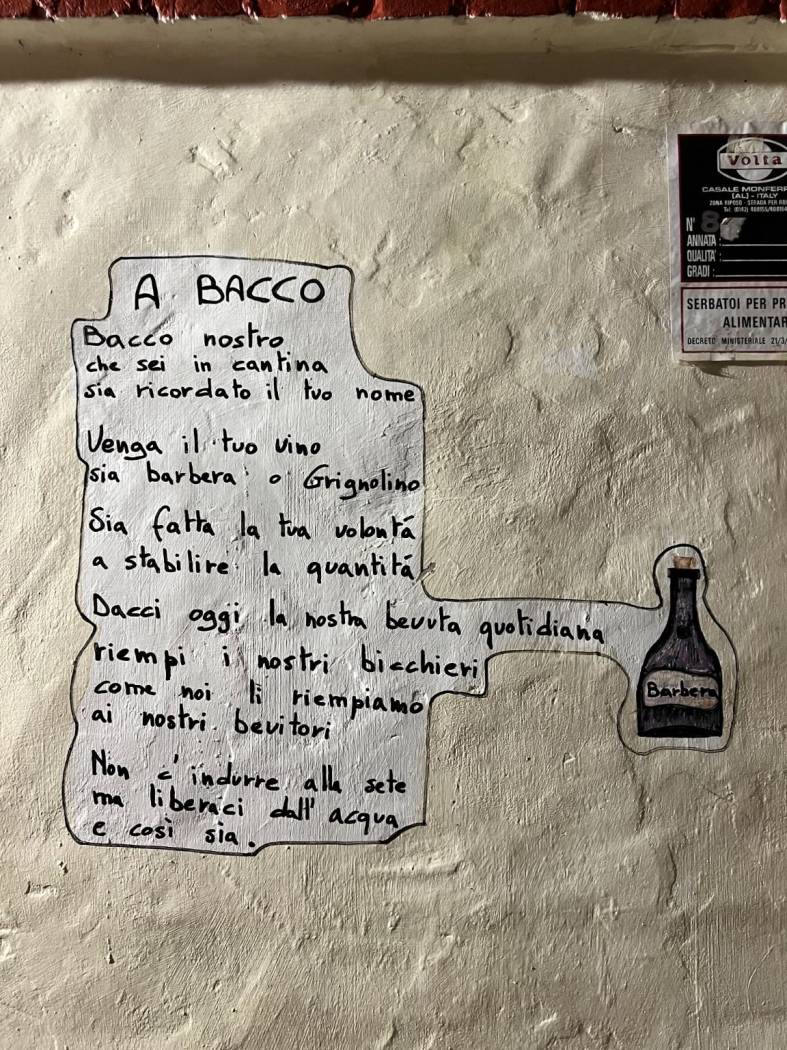 A BACCO
Bacco nostro
che sei in cantina
sia ricordato il tuo nome
Venga il tuo vino
sia barbera o Grignolino
Sia fatta la tua volontá
a stabilire la quantitá
Dacci oggi la nostra bevuta quotidiana
riempi i nostri bicchieri
come noi li riempiamo
ai nostri bevitori
Non c'indurre alla sete
ma liberaci dall'acqua
e così sia.
Barbera
Volta
CASALE MONFERR
(AL) - ITALY
N° 8
ANNATA:
QUALITA':
GRADI:
SERBATOI PER PR
ALIMENTAR
DECRETO MINISTERIALE 21/3/